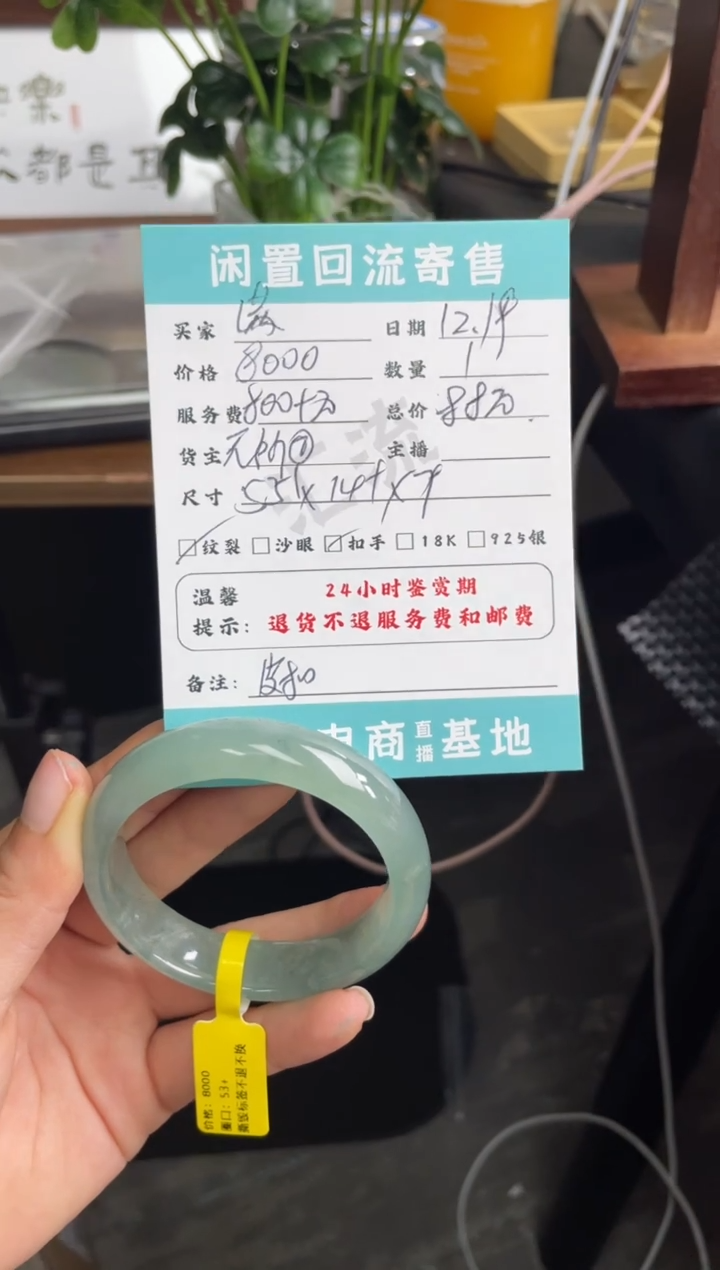 樂
都是
闲置回流寄售
买家 满 日期 12.19
价格 8000 数量 1
服务费 800+ 总价
货主 主播
尺寸 53+x14+x7
纹裂 沙眼 扣手 18K 925银
温馨 24小时鉴赏期
提示: 退货不退服务费和邮费
备注:
汇流
电商直播基地
价格: 8000
圈口: 53+
撕毁标签不退不换